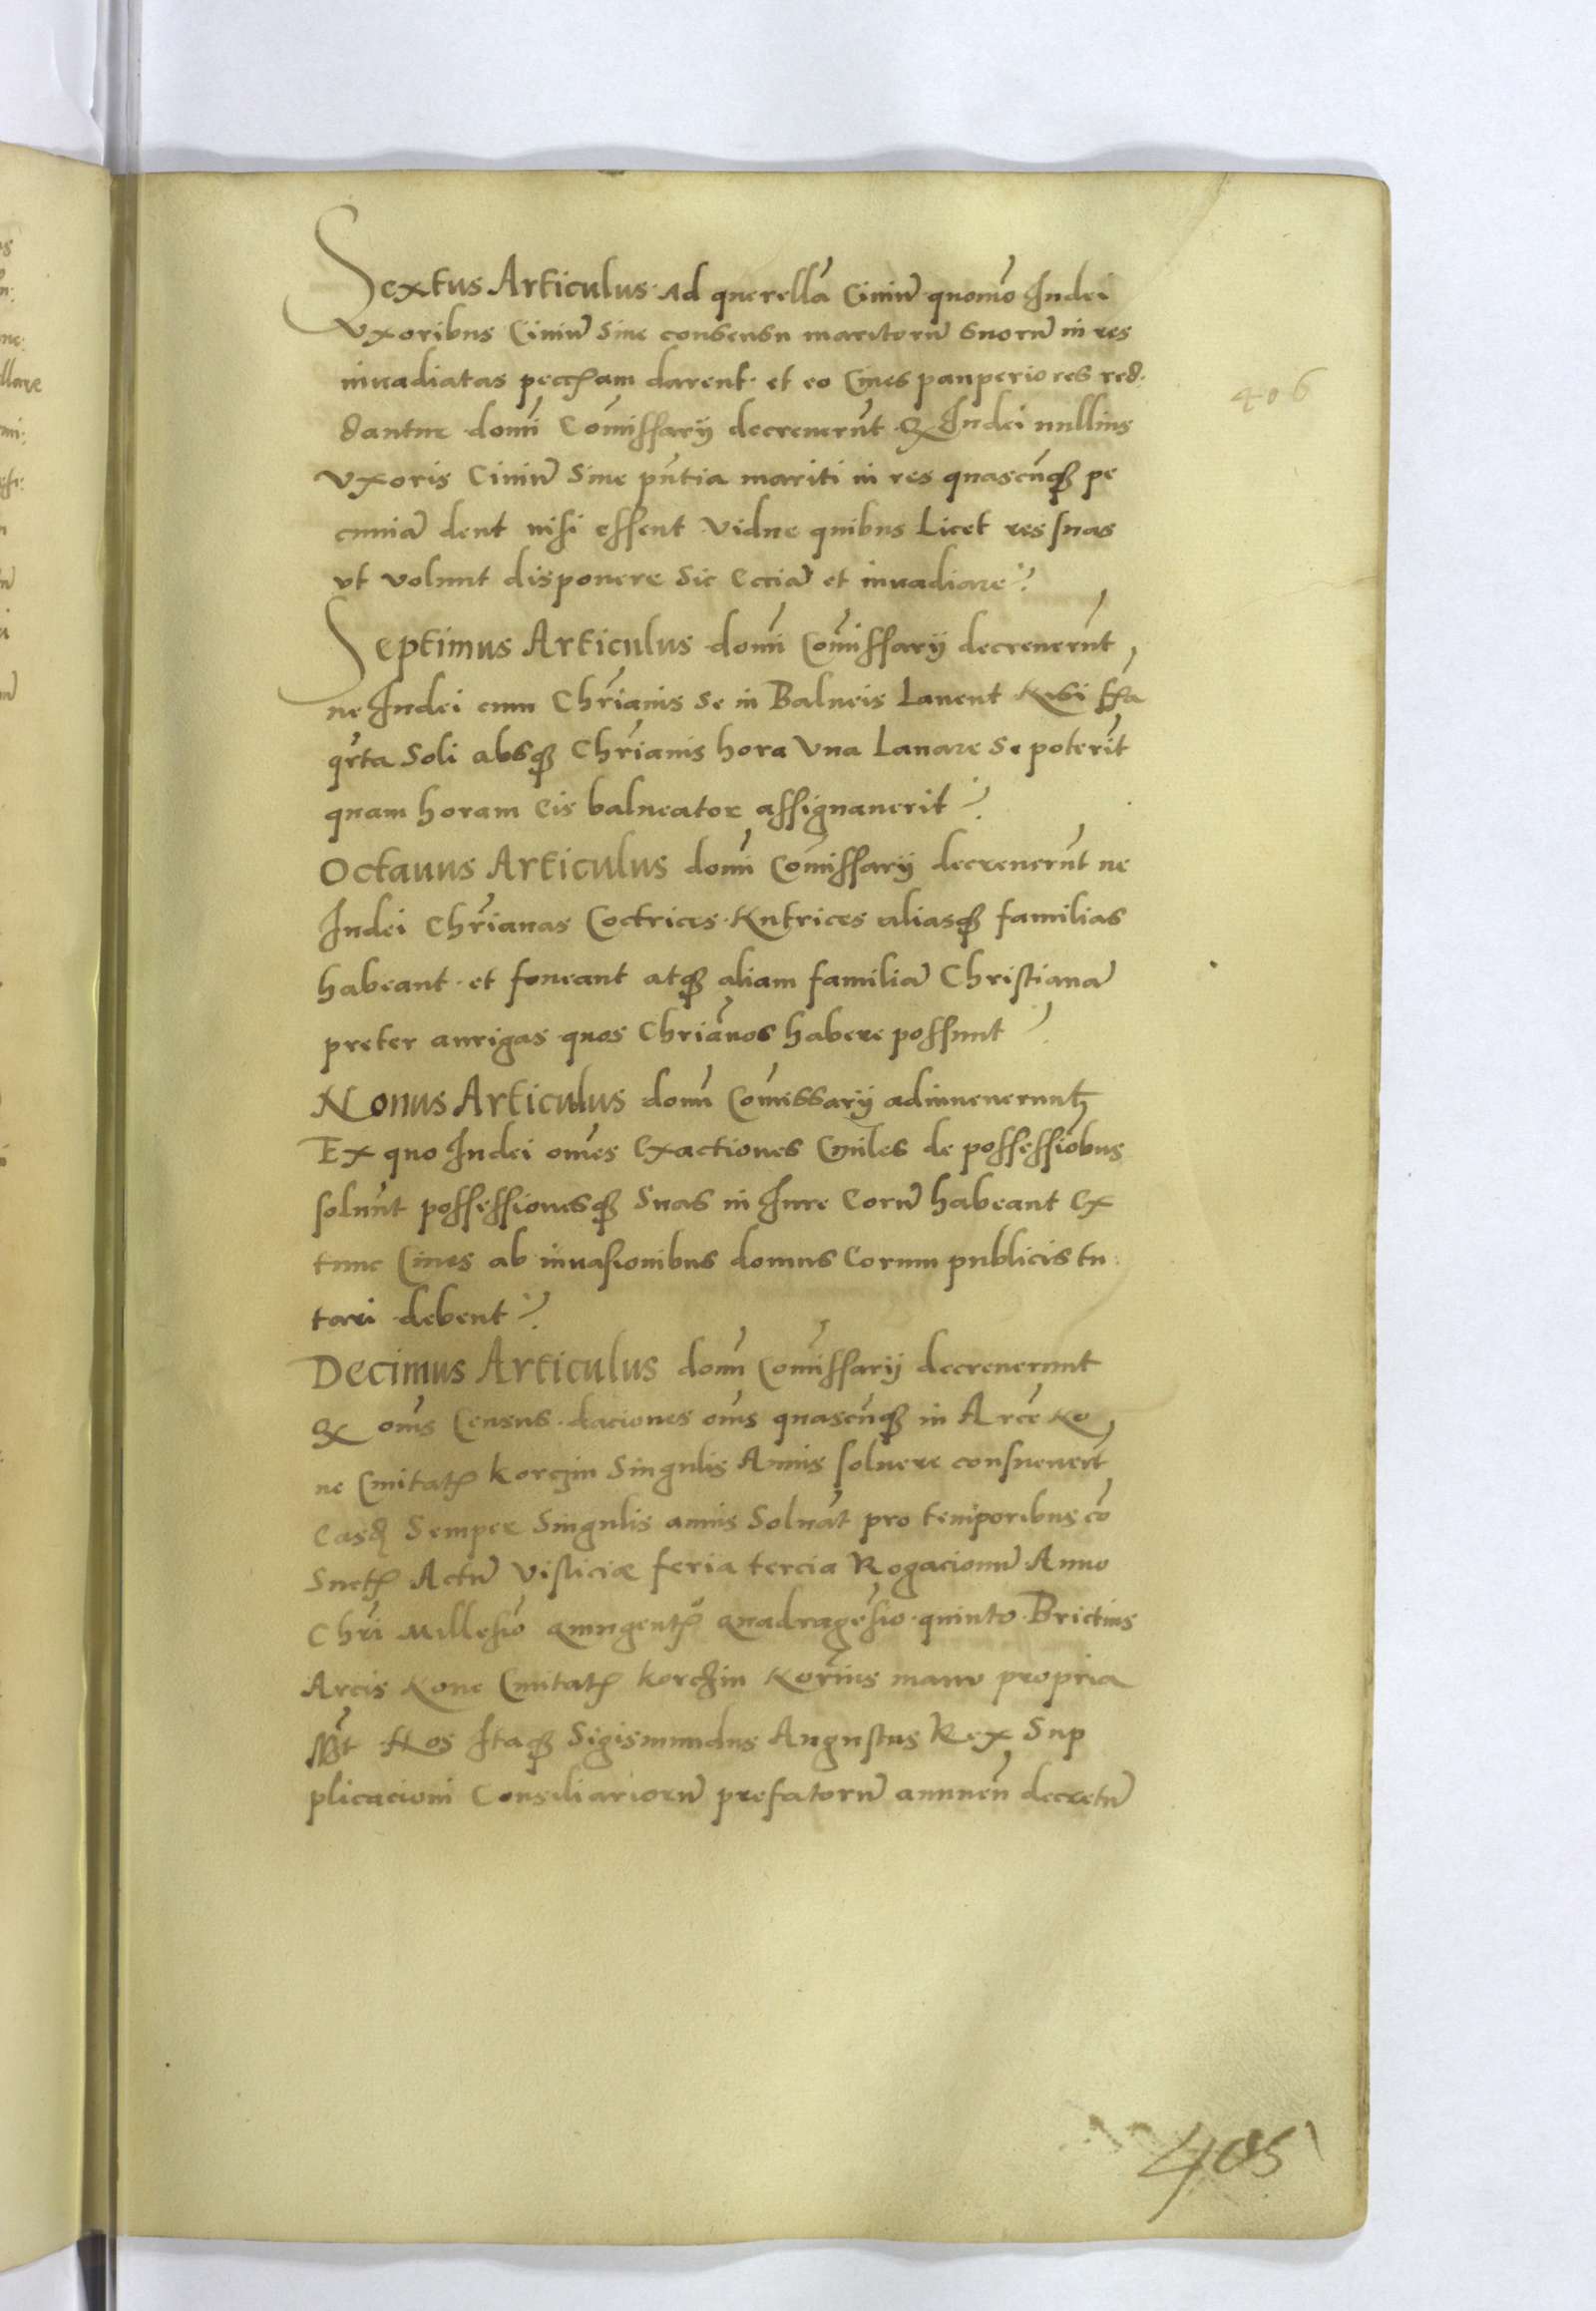 Sextus Articulus Ad querellā Ciuiū quomō Iudei
Vxoribus Ciuiū Sine consensu maritorū suorū in res
inuadiatas pecc̃am darent et eo Ciues pauperiores red:
dantur domī Com̄issarij decreuerūt q Iudei nullius
Vxoris Ciuiū Sine pn̄tia mariti in res quascūq pe
cuniā dent nisi essent Vidue quibus Licet res suas
vt volunt disponere Sic Ecciā et inuadiare
Septimus Articulus domī Com̄issarij decreuerūt
ne Iudei cum Chr̄ianis Se in Balneis Lauent Nisi
qr̄ta Soli absq Chr̄ianis hora Vna Lauare Se poterīt
quam horam Eis balneator assignauerit
Octauus Articulus domī Com̄issarij decreuerūt ne
Iudei Chr̄ianas Coctrices Nutrices aliasq familias
habeant et foueant atq aliam familiā Christianā
preter aurigas quos Chriānos habere possunt
Nonus Articulus domī Com̄issarij adinuenerunt
Ex quo Iudei om̄es Exactiones Ciuiles de possessiōbus
soluūt possessionesq Suas in Iure Eorū habeant Ex
tunc Ciues ab inuasionibus domus Eorum publicis tu:
tari debent
Decimus Articulus domī Com̄issarij decreuerunt
q om̄s Census daciones om̄s quascūq in Arcē No
ue Ciuitat̃ Korczin Singulis Annis soluere consueuerūt
Easd Semper Singulis annis Soluāt pro temporibus cō
Suet̃ Actū Visliciæ feria tercia Rogacionū Anno
Chrī Millesiō quingent̃o quadragēsio quinto Brictius
Arcis Noue Ciuitat̃ Korczin Nor̄ius manu propria
sst̄ Nos Itaq Sigismundus Augustus Rex Sup
plicacioni Consiliariorū prefatorū annueñ decretū
406
405